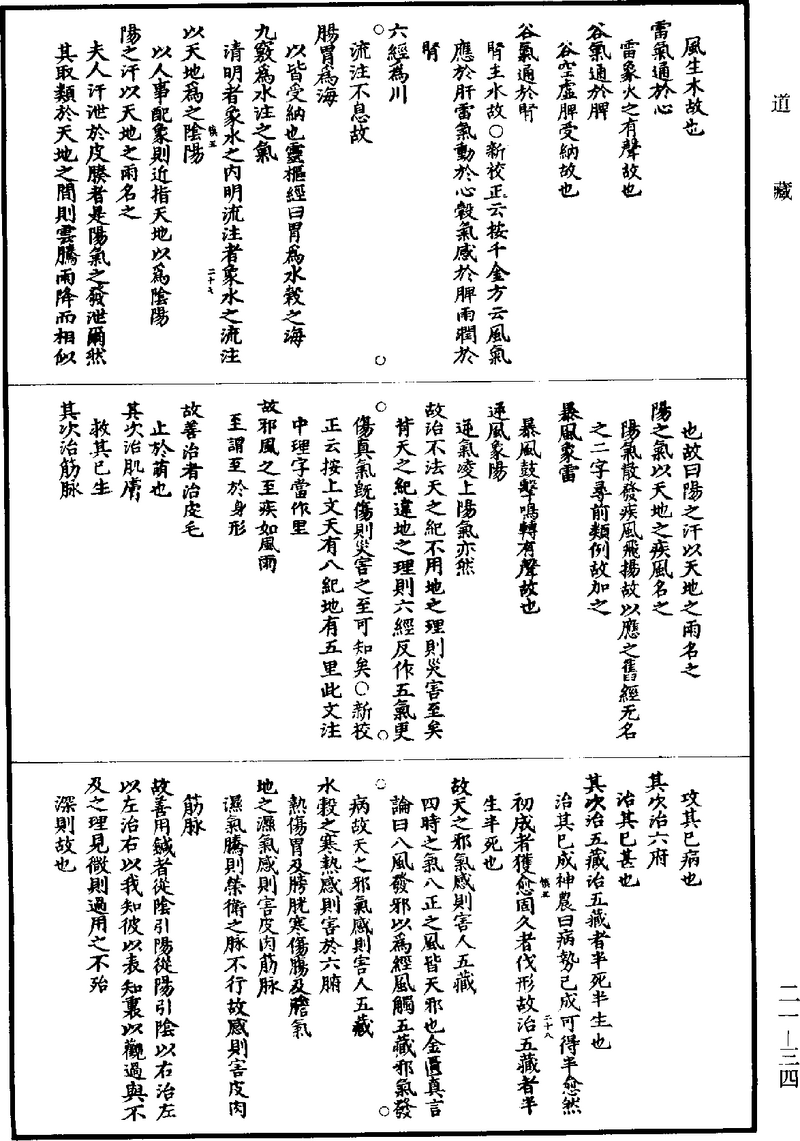 道藏
風生木故也
雷氣通於心
雷象火之有聲故也
谷氣通於脾
谷空虛脾受納故也
谷氣通於腎
腎主水故○新校正云按千金方云風氣
應於肝雷氣動於心穀氣感於脾雨潤於
腎
六經為川
流注不息故
腸胃為海
以皆受納也靈樞經曰胃為水穀之海
九竅為水注之氣
清明者象水之內明流注者象水之流注
二十七
慎五
以天地為之陰陽
以人事配象則近指天地以為陰陽
陽之汗以天地之雨名之
夫人汗泄於皮腠者是陽氣之發泄爾然
其取類於天地之間則雲騰雨降而相似
也故曰陽之汗以天地之雨名之
陽之氣以天地之疾風名之
陽氣散發疾風飛揚故以應之舊經无名
之二字尋前類例故加之
暴風象雷
暴風鼓擊鳴轉有聲故也
逆風象陽
逆氣凌上陽氣亦然
故治不法天之紀不用地之理則災害至矣
背天之紀違地之理則六經反作五氣更
傷真氣既傷則災害之至可知矣○新校
正云按上文天有八紀地有五里此文注
中理字當作里
故邪風之至疾如風雨
至謂至於身形
故善治者治皮毛
止於萌也
其次治肌膚
救其已生
其次治筋脉
攻其已病也
其次治六府
治其已甚也
其次治五藏治五藏者半死半生也
治其已成神農曰病勢已成可得半愈然
慎五
二十八
初成者獲愈固久者伐形故治五藏者半
生半死也
故天之邪氣感則害人五藏
四時之氣八正之風皆天邪也金匱真言
論曰八風發邪以為經風觸五藏邪氣發
病故天之邪氣感則害人五藏
水穀之寒熱感則害於六腑
熱傷胃及膀胱寒傷腸及膽氣
地之濕氣感則害皮肉筋脉
濕氣騰則榮衛之脉不行故感則害皮肉
筋脉
故善用鍼者從陰引陽從陽引陰以右治左
以左治右以我知彼以表知裏以觀過與不
及之理見微則過用之不殆
深則故也
二一—三四